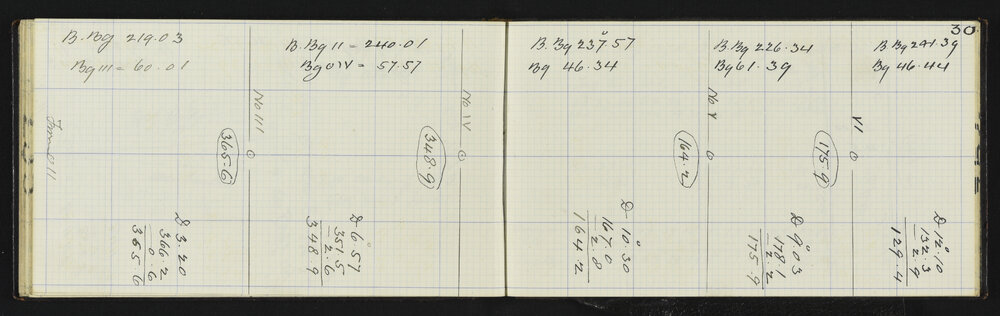 30
B. Bg 219.03
Bg III = 60.01
B. Bg II = 240.01
Bg O IV = 57.57
B. Bg 237°.57
Bg 46.34
B. Bg 226.34
Bg 61.39
B. Bg 241.39
Bg 46.44
From O II
No III
365.6
No IV
348.9
No V
164.2
VI
175.9
D 3.20
366.2
0.6
365.6
D 6°.57
351.5
2.6
348.9
D 10°.30
167.0
2.8
164.2
D 9°.03
178.1
2.2
175.9
D 12°.10
132.3
2.9
129.4